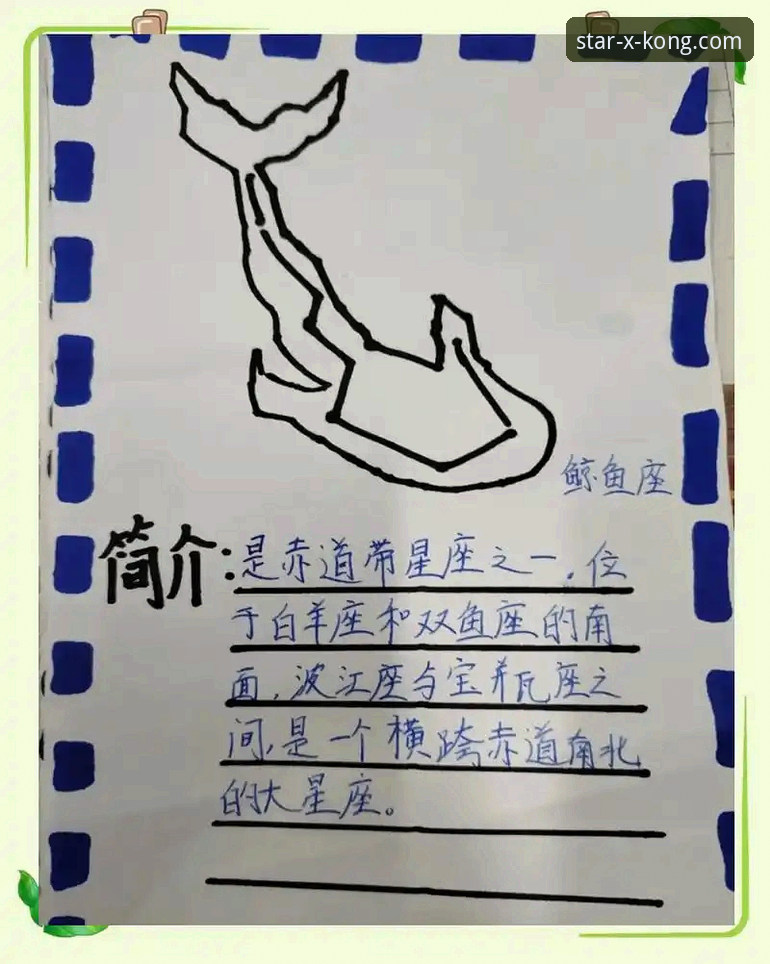 star-x-kong.com
鲸鱼座
简介:是赤道带星座之一.位
于白羊座和双鱼座的南
面,波江座与宝瓶座之
间,是一个横跨赤道南北
的大星座。